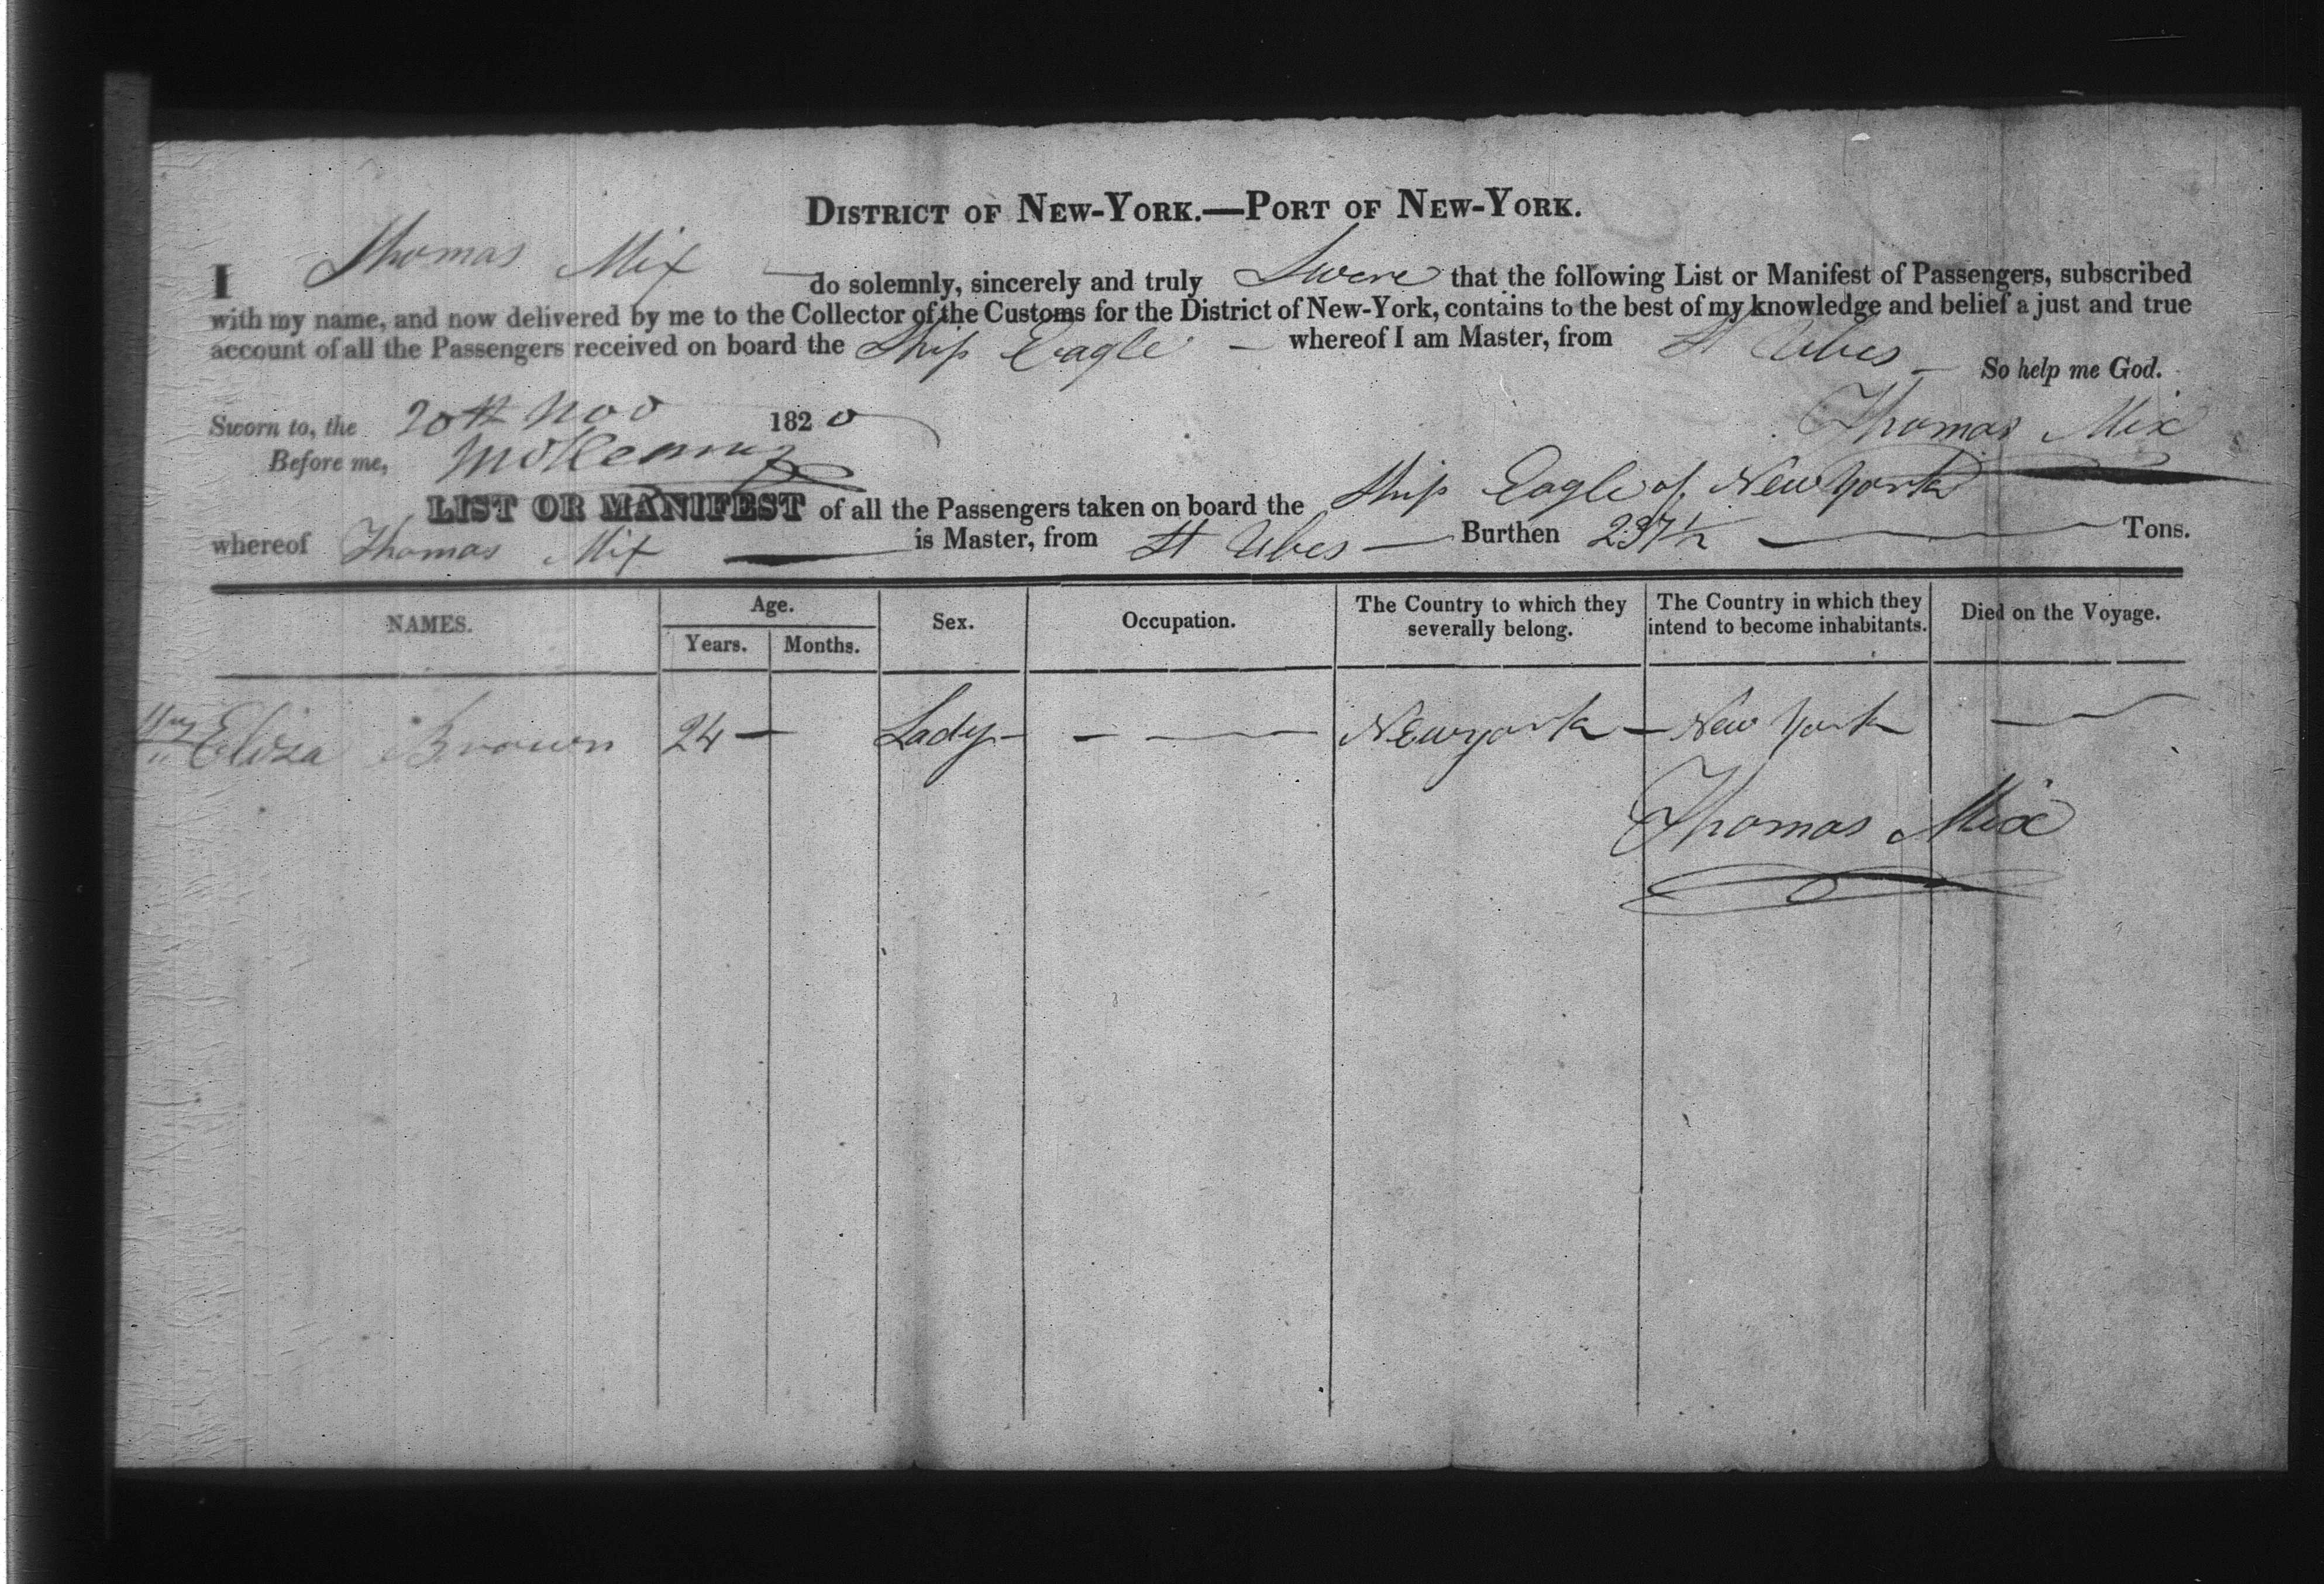 DISTRICT OF NEW-YORK.—PORT OF NEW-YORK.
I Thomas Mix — do solemnly, sincerely and truly Swere that the following List or Manifest of Passengers, subscribed
with my name, and now delivered by me to the Collector of the Customs for the District of New-York, contains to the best of my knowledge and belief a just and true
account of all the Passengers received on board the Ship Eagle — whereof I am Master, from St Ubes — So help me God.
Sworn to, the 20th Nov 1820
Thomas Mix
Before me,
LIST OR MANIFEST of all the Passengers taken on board the Ship Eagle of New York
whereof Thomas Mix — is Master, from St Ubes — Burthen 237½ — Tons.
NAMES. Age. Sex. Occupation. The Country to which they severally belong. The Country in which they intend to become inhabitants. Died on the Voyage.
Years. Months.
Eliza Brown 24 — Lady — — — Newyork — New York —
Thomas Mix